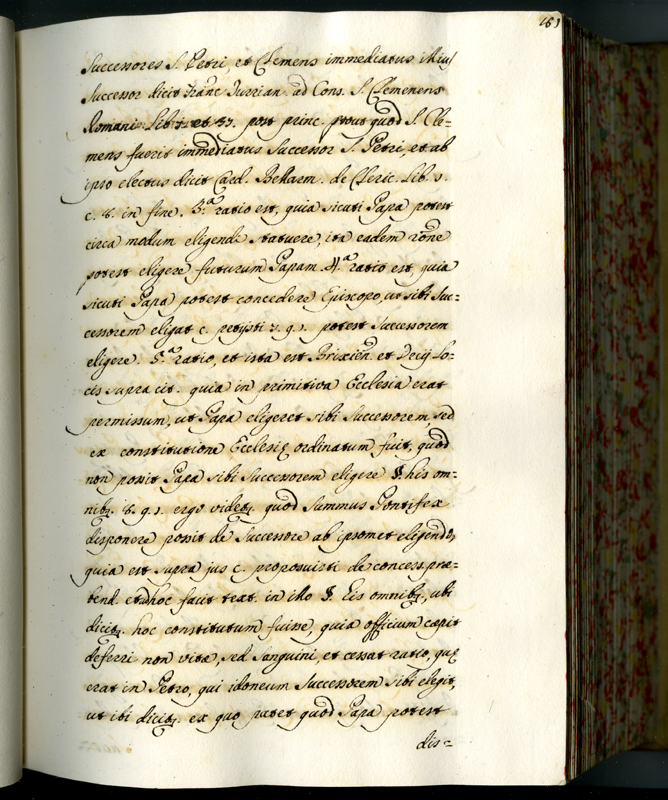 151
Successores S. Petri, et Clemens immediatus illius
Successor dicit Franc. Turrian. ad Cons. S. Clementis
Romani Lib. 7. et 37. post princ. prout quod S. Cle=
mens fuerit immediatus Successor S. Petri, et ab
ipso electus dicit Card. Bellarm. de Cleric. Lib. 1.
c. 8. in fine. 3.ª ratio est, quia sicuti Papa potest
circa modum eligendi statuere, ita eadem rõne
potest eligere futurum Papam. 4.ª ratio est, quia
sicuti Papa potest concedere Episcopo, ut sibi suc=
cessorem eligat c. petijsti 7. q. 1. potest Successorem
eligere. 5.ª ratio, et ista est Brixien. et Decij lo=
cis supra cit. quia in primitiva Ecclesia erat
permissum, ut Papa eligeret sibi Successorem, sed
ex constitutione Ecclesię ordinatum fuit, quod
non possit Papa sibi Successorem eligere §. his om=
nibq. 8. q. 1. ergo videtq. quod Summus Pontifex
disponere possit de Successore ab ipsomet eligendo,
quia est supra jus c. proposuisti de concess. præ=
bend. et hoc facit text. in illo §. Eis omnibq., ubi
dicitq. hoc constitutum fuisse, quia officium cæpit
deferri non vitæ, sed sanguini, et cessat ratio, quę
erat in Petro, qui idoneum Successorem sibi elegit,
ut ibi dicitq. ex quo patet quod Papa potest
dis=